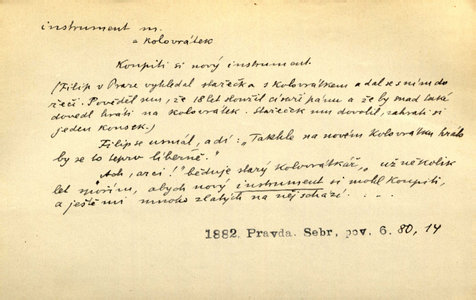 instrument m.
a kolovrátek
Koupiti si nový instrument.
(Filip v Praze vyhledal stařečka s kolovrátkem a dal se s ním do
řeči. Pověděl mu, že 18 let sloužil císaři pánu a že by snad také
dovedl hráti na kolovrátek. Stařeček mu dovolil, zahrati si
jeden kousek.)
Filip se usmál, a dí: „Takhle na novém kolovrátku hrát
by se to teprv liberně."
„Ach, arci!" běduje starý kolovrátkář, „už několik
let spořím, abych nový instrument si mohl koupiti,
a ještě mi mnoho zlatých na něj schází . . . .
1882. Pravda. Sebr. pov. 6. 80, 14